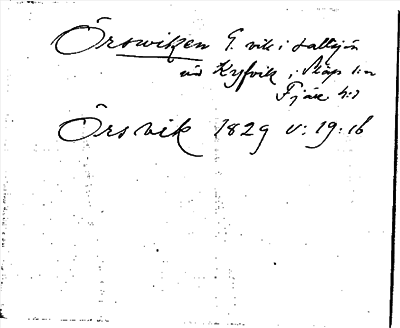 Örswiken G. vik i saltsjön
vid Kyfvik, i Släps sn
Fjäre hd
Örsvik 1829 v: 19: 16